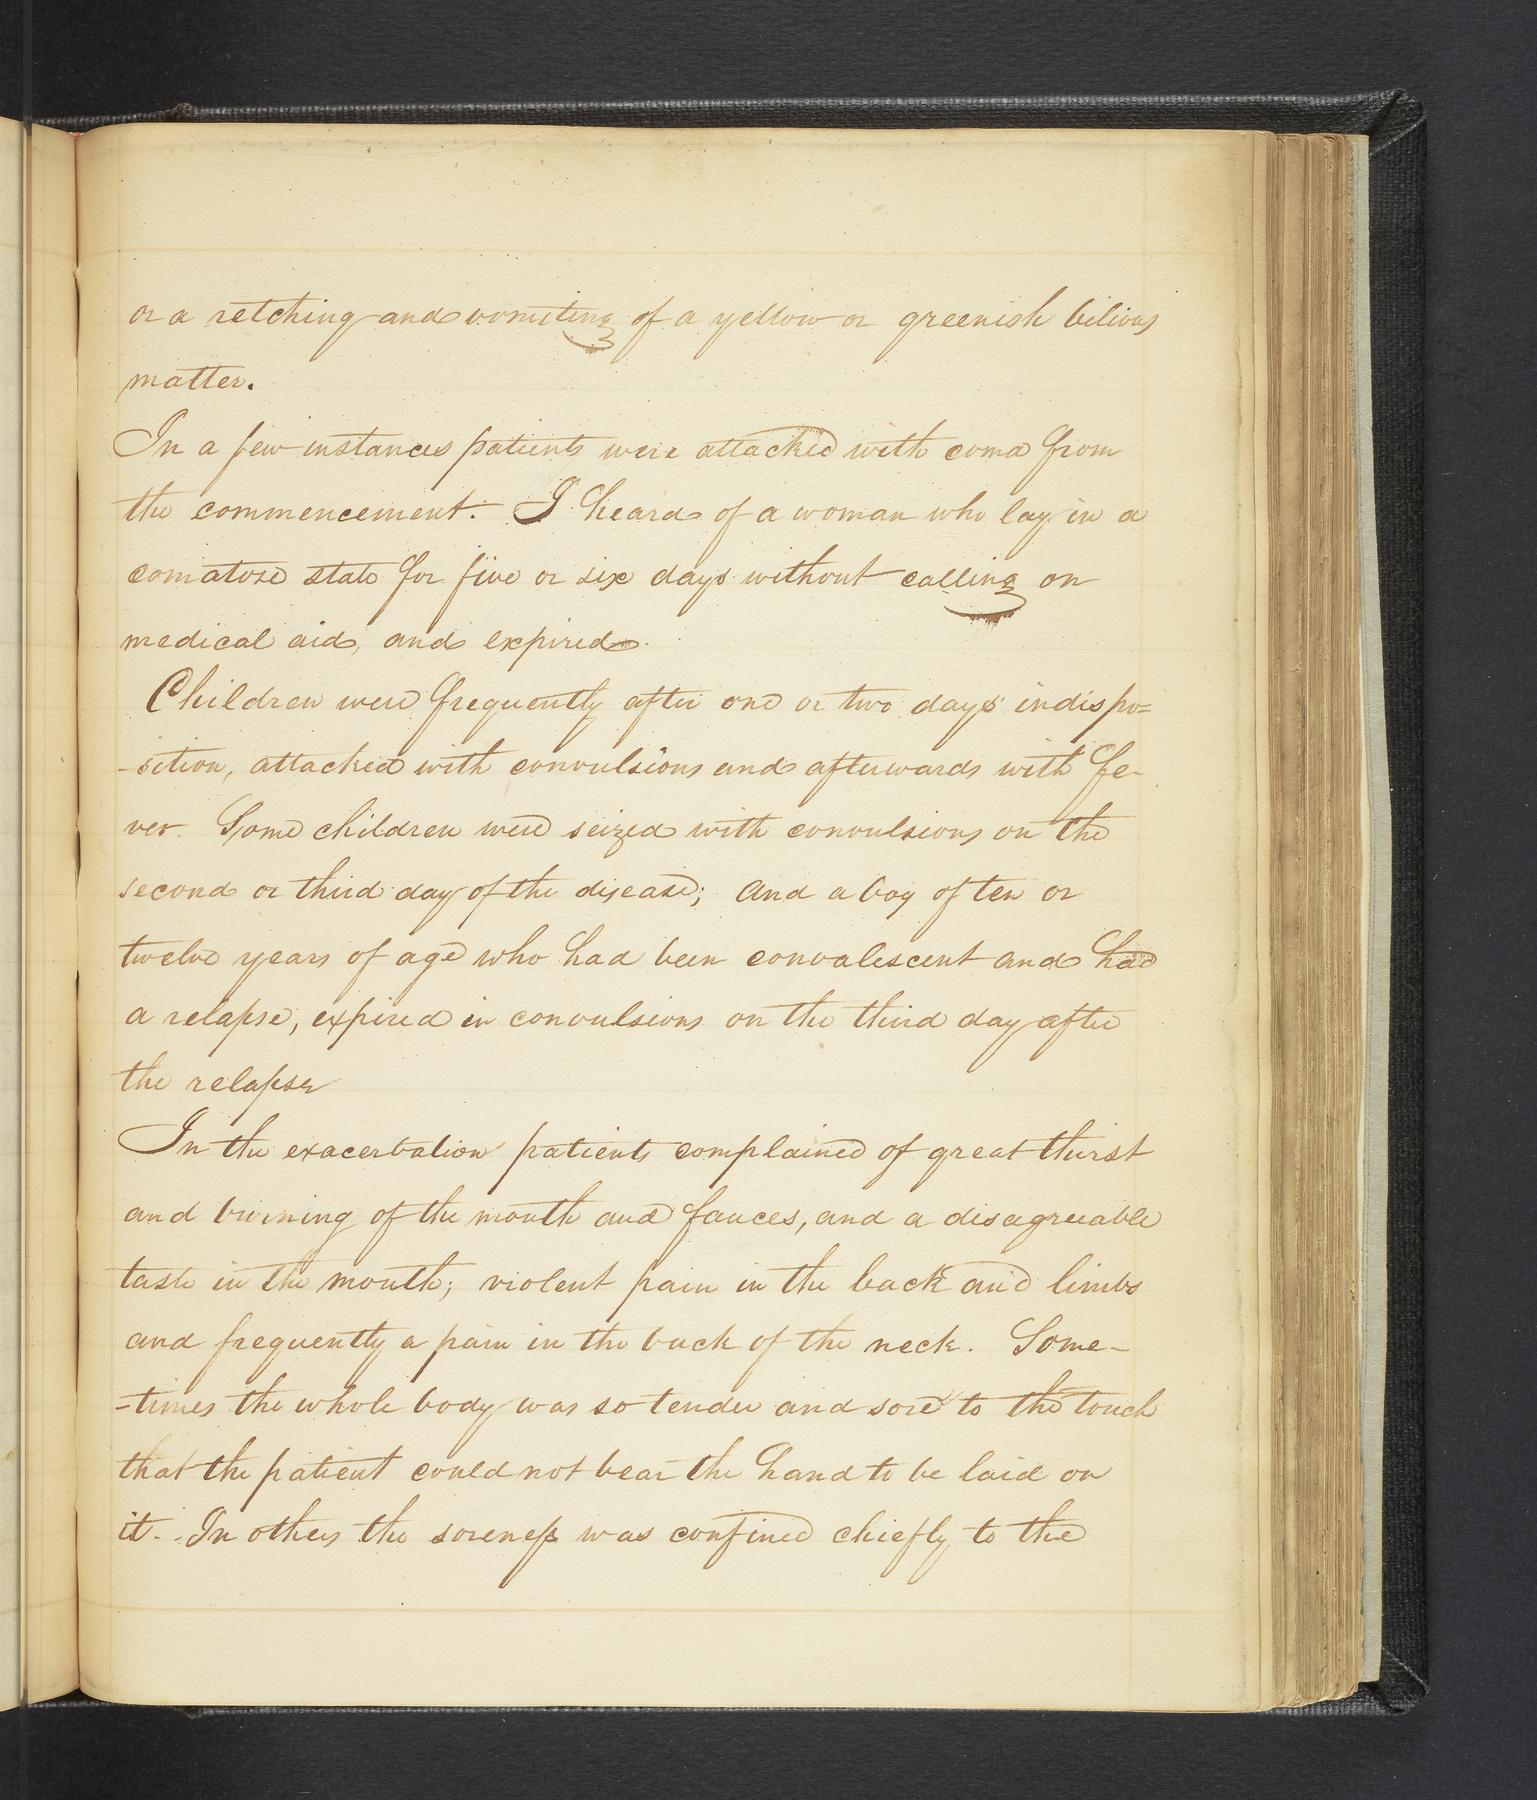 or a retching and vomiting of a yellow or greenish bilious
matter.
In a few instances patients were attacked with coma from
the commencement. I heard of a woman who lay in a
comatose state for five or six days without calling on
medical aid, and expired.
Children were frequently after one or two days indispo=
-sition, attacked with convulsions and afterwards with fe-
ver. Some children were seized with convulsions on the
second or third day of the disease; and a boy of ten or
twelve years of age who had been convalescent and had
a relapse, expired in convulsions on the third day after
the relapse
In the exacerbation patients complained of great thirst
and burning of the mouth and fauces, and a disagreeable
taste in the mouth; violent pain in the back and limbs
and frequently a pain in the back of the neck. Some-
-times the whole body was so tender and sore to the touch
that the patient could not bear the hand to be laid on
it. In others the soreness was confined chiefly to the